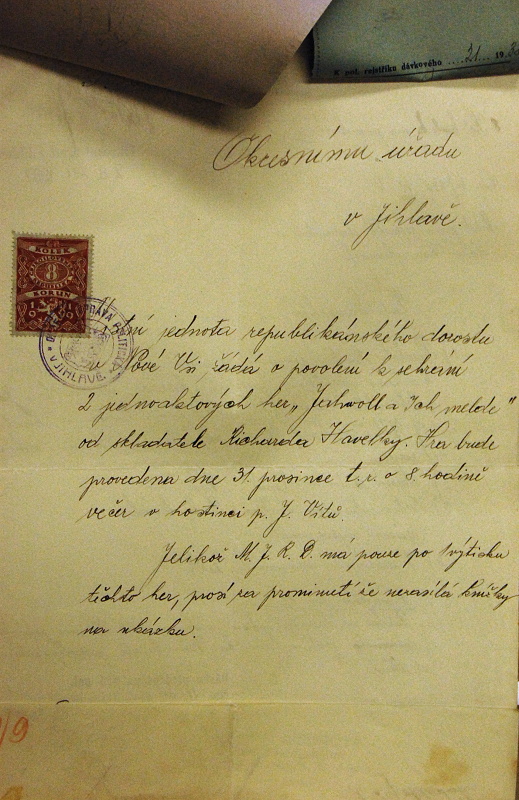 k pol. rejstříku dávkového .... 21 ... 19
Okresnímu úřadu
v Jihlavě.
KOLEK
8
KORUN
SPRÁVA POLITICKÁ
V JIHLAVĚ
Místní jednota republikánského dorostu
v Nové Vsi žádá o povolení k sehrání
2 jednoaktových her, „Jahwoll a Ich melde"
od skladatele Richarda Havelky. Hra bude
provedena dne 31. prosince t. r. o 8. hodině
večer v hostinci p. J. Vítů.
Jelikož M. J. R. D. má pouze po 1 výtisku
těchto her, prosí za prominutí že nezasílá knížky
na ukázku.
/9